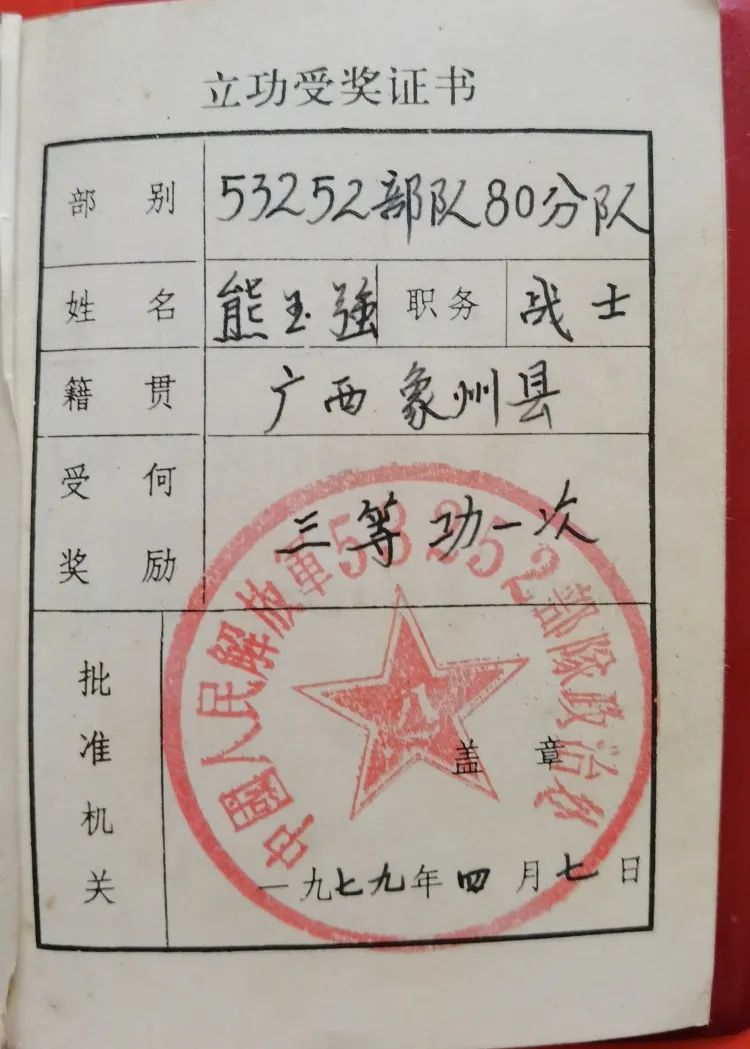 立功受奖证书
部别 53252部队80分队
姓名 熊玉强 职务 战士
籍贯 广西象州县
受何奖励 三等功一次
批准机关
中國人民解放軍53252部隊政治处
盖章
一九七九年四月七日